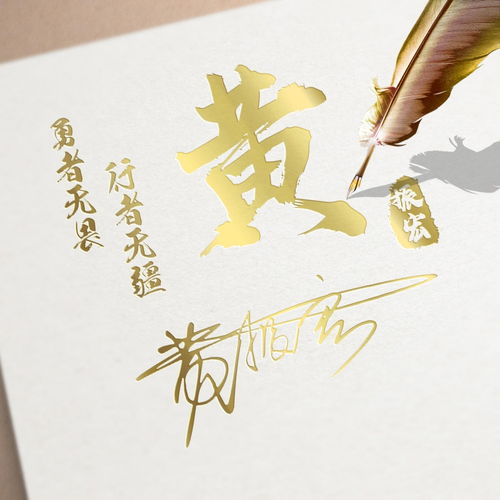 黄
振宏
勇者无畏
行者无疆
黄振宏